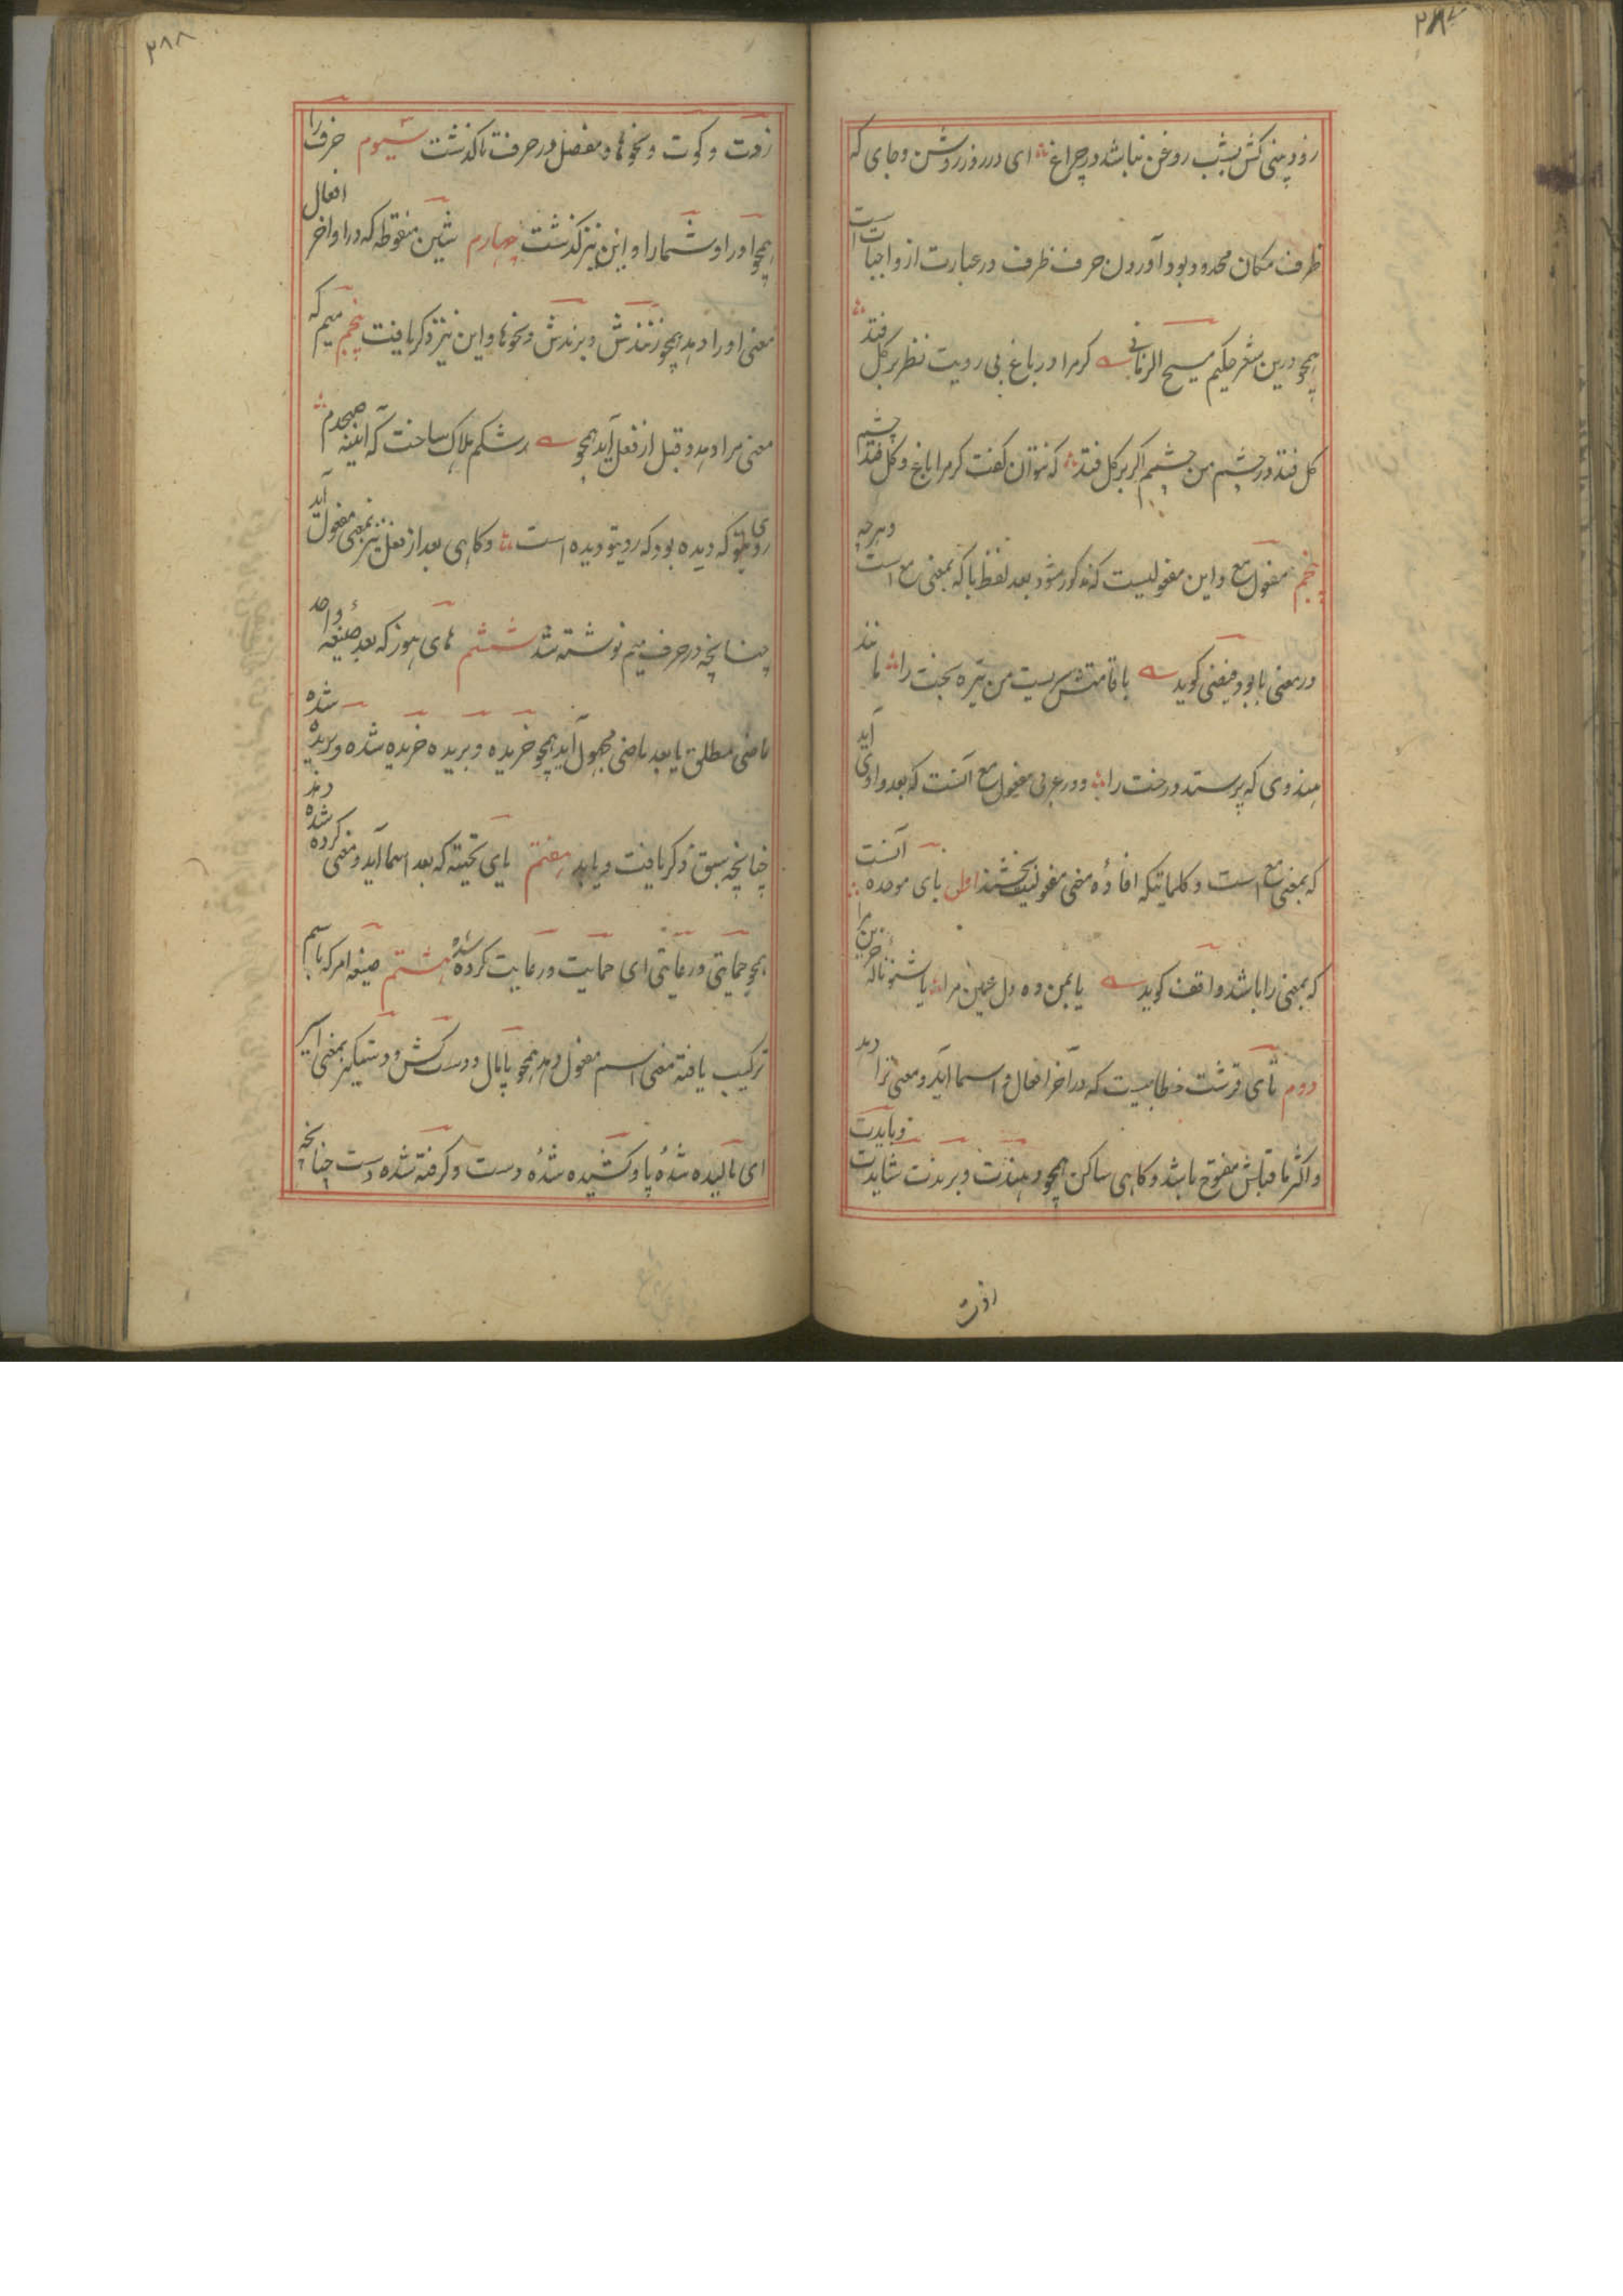 ۲۸۷
زود بینی کش بشب روغن نباشد در چراغ ای در روز روشن و جای که
ظرف مکان محدود بود آوردن حرف ظرف در عبارت از واجبات است
همچو درین شعر حکیم مسیح الزمانی کر مرا در باغ بی رویت نظر بر کل فتد
کل فتد در چشم من چشمم اکر بر کل فتد که نتوان کفت کر مرا باغ و کل فتد چشم
پنجم مفعول مع و این مفعولیست که مذکور شود بعد لفظ با که بمعنی مع است و هرچه
در معنی با بود فیضی کوید با قامتش سریست من تیره بخت را مانند
هندوی که پرستد درخت را و در عربی مفعول مع آنست که بعد واوی آید
که بمعنی مع است و کلماتیکه افادهٔ معنی مفعولیت بخشند اول بای موحده آنست
که بمعنی را باشد واقف کوید یا بمن ده دل غمین مرا یا شنو نالهٔ حزین مرا
دوم تای قرشت خطابیست که در آخر افعال و اسما آید و معنی ترا دهد
و اکثر ما قبلش مفتوح باشد و کاهی ساکن همچو دهندت و برندت شایدت و بایدت
زدت
۲۸۸
زدت و کوت و نحو ها و مفصل در حرف تا کذشت سیوم حرف را
همچو او را و شما را و این نیز کذشت چهارم شین منقوطه که در اواخر افعال
معنی او را دهد همچو زنندش و برندش و نحوها و این نیز ذکر یافت پنجم میم که
معنی مرا دهد و قبل از فعل آید همچو رشکم هلاک ساخت که آیینه صبحدم
روی تو که دیده بود که روی تو دیده است و کاهی بعد از فعل نیز بمعنی مفعول آید
چنانچه در حرف میم نوشته شد ششم های هوز که بعد صیغهٔ واحد
ماضی مطلق یا بعد ماضی مجهول آید همچو خریده و بریده خریده شده و بریده شده
چنانچه سبق ذکر یافت و یابد هفتم یای تحتیه که بعد اسما آید و معنی کرده شده دهد
همچو حمایتی و رعایتی ای حمایت و رعایت کرده شده هشتم صیغه امر که باسم
ترکیب یافته معنی اسم مفعول دهد همچو پامال و دست کش و دستکیر بمعنی اسیر
ای مالیده شدهٔ پا و کشیده شدهٔ دست و کرفته شده دست چنانچه